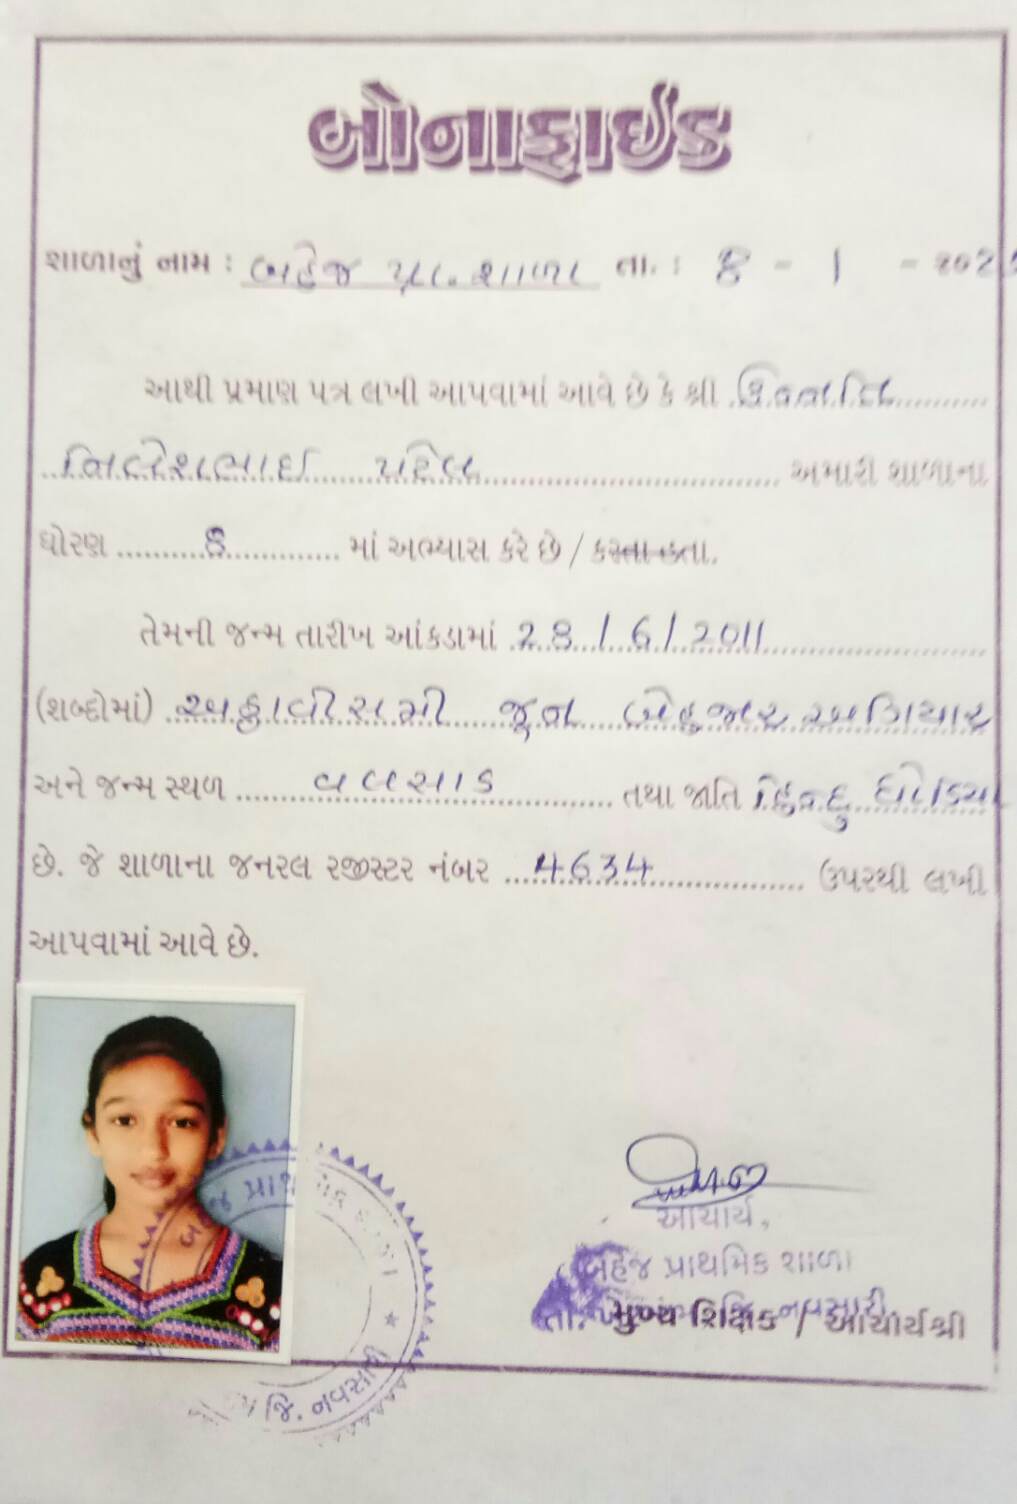 બોનાફાઈડ
શાળાનું નામ : બહેજ પ્રા. શાળા તા. : 8 - 1 - ૨૦2
આથી પ્રમાણ પત્ર લખી આપવામાં આવે છે કે શ્રી
નિલેશભાઈ પટેલ અમારી શાળાના
ધોરણ 8 માં અભ્યાસ કરે છે / કરતા હતા.
તેમની જન્મ તારીખ આંકડામાં 28/6/2011
(શબ્દોમાં) અઠ્ઠાવીસમી જૂન બેહજાર અગિયાર
અને જન્મ સ્થળ વલસાડ તથા જાતિ હિન્દુ ધોડિયા
છે. જે શાળાના જનરલ રજીસ્ટર નંબર 4634 ઉપરથી લખી
આપવામાં આવે છે.
આચાર્ય,
બહેજ પ્રાથમિક શાળા
જિ. નવસારી.
મુખ્ય શિક્ષક / આચાર્યશ્રી
જિ. નવસારી